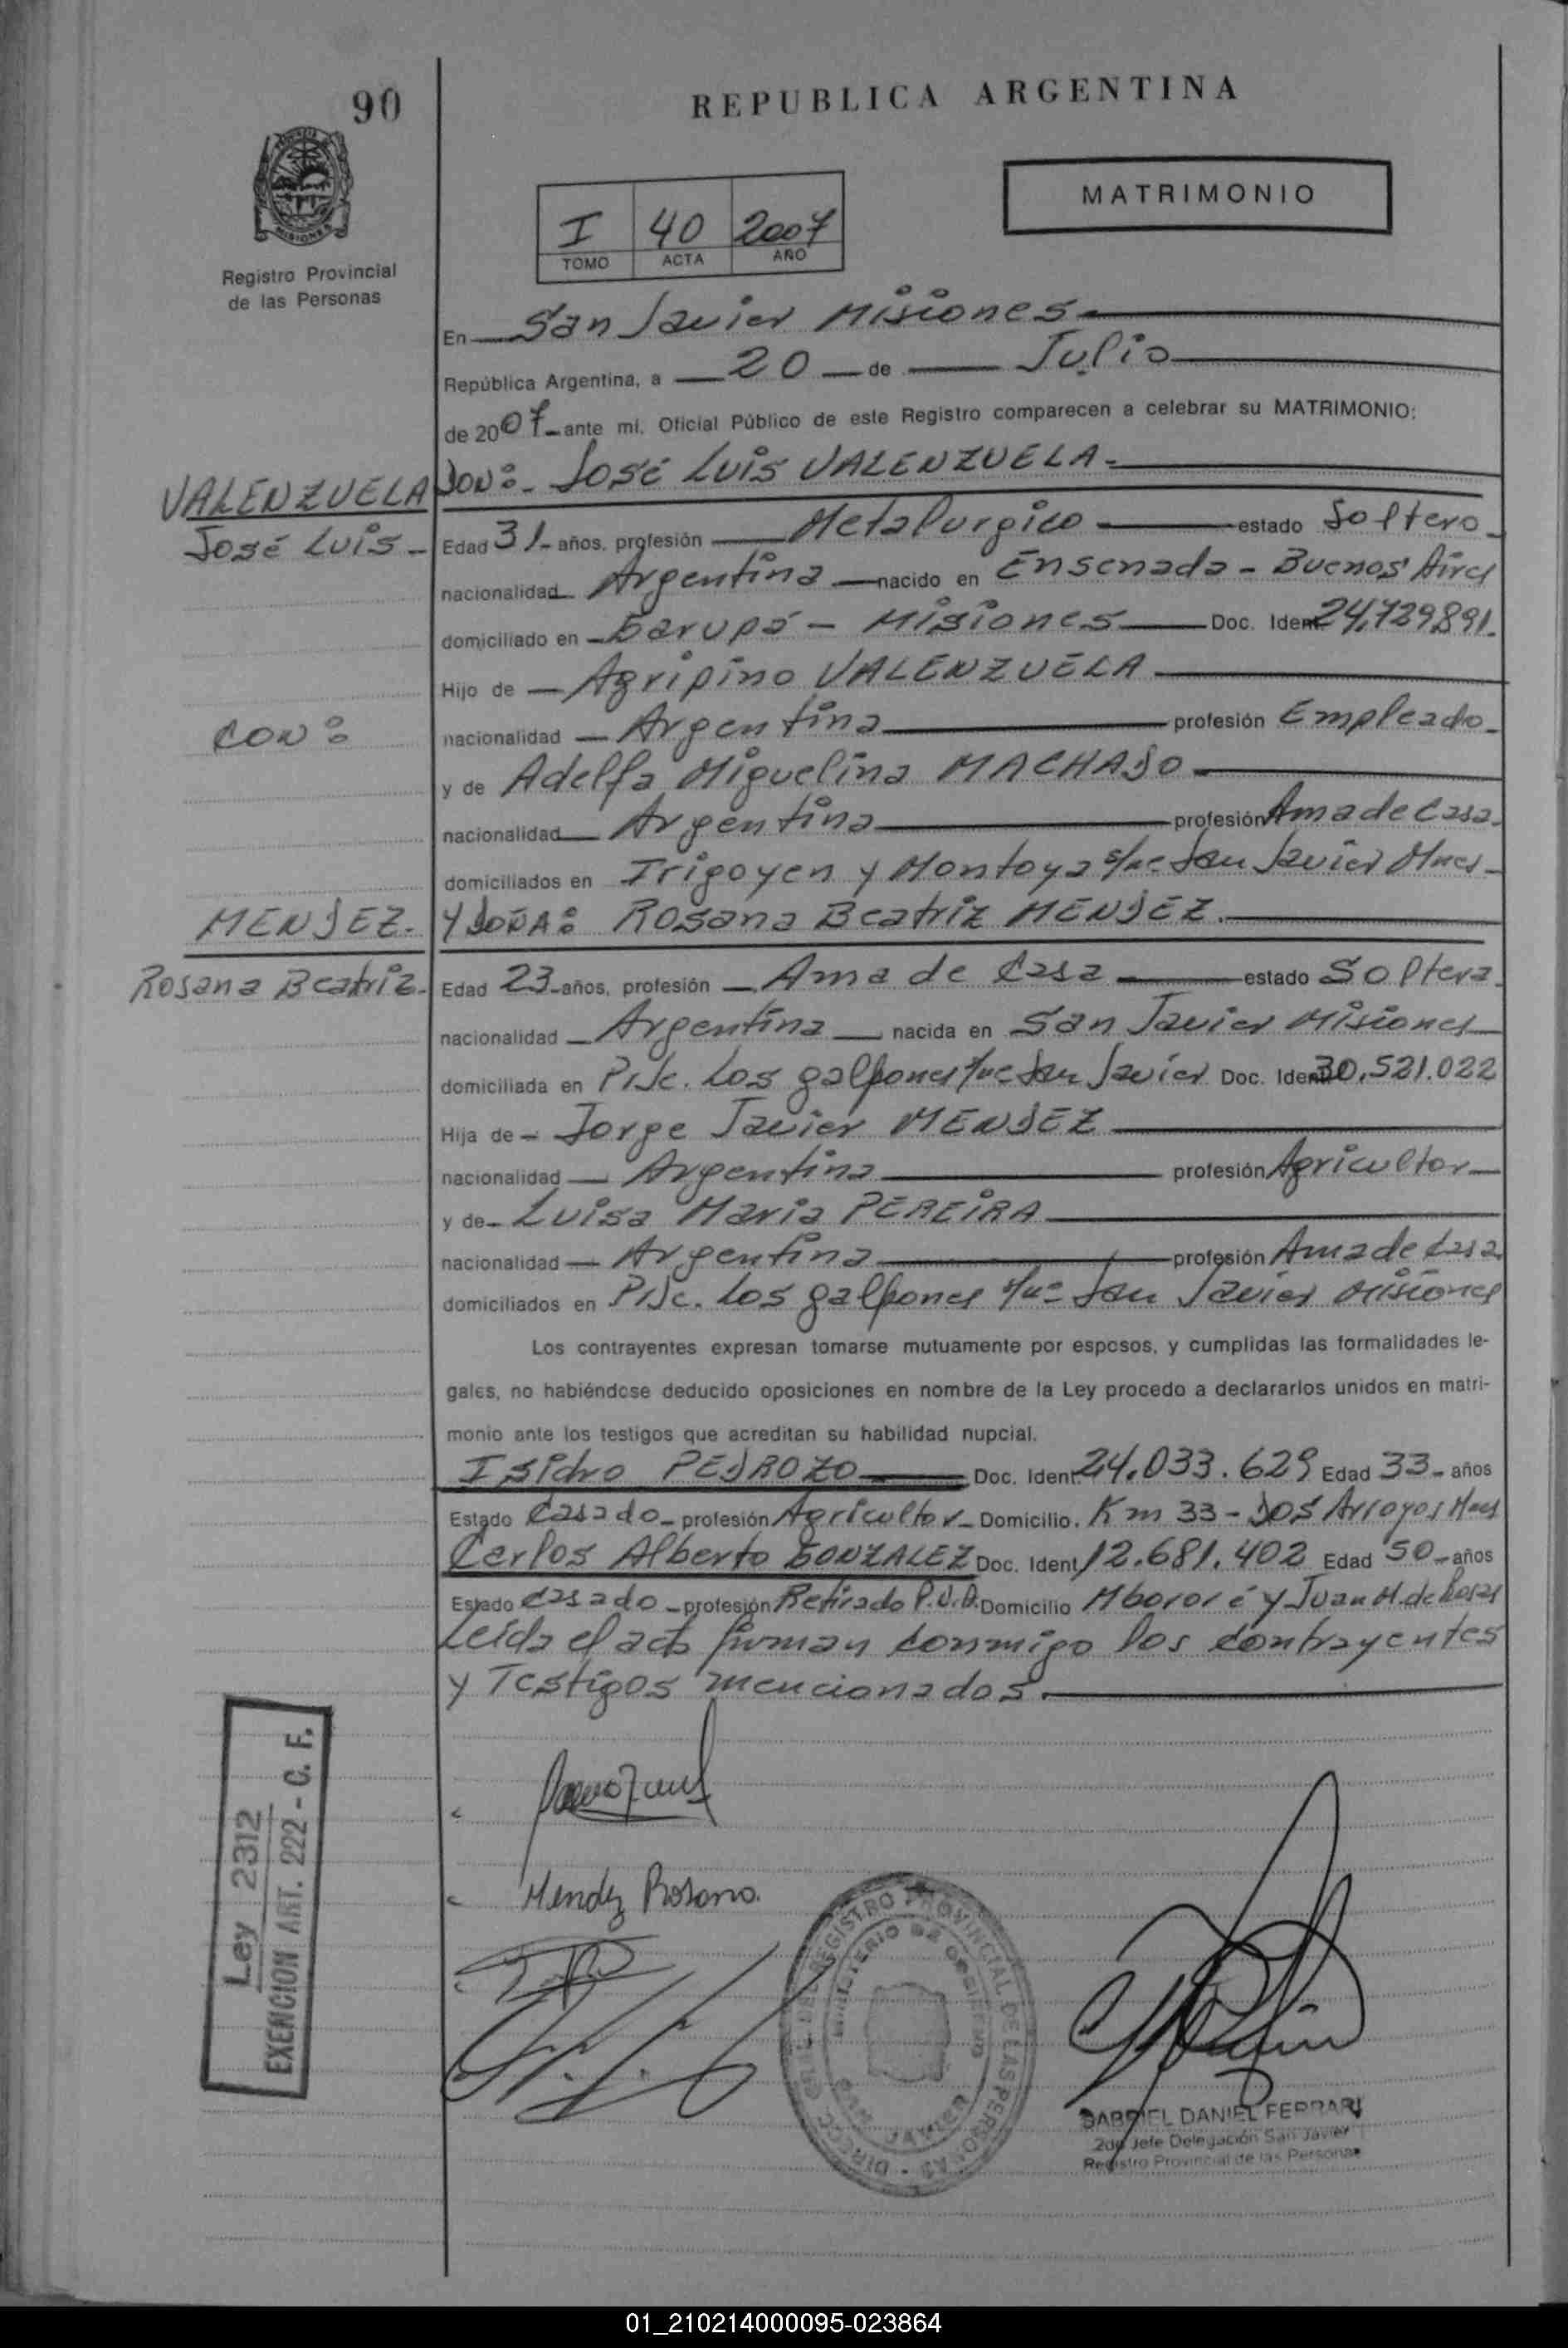 90
REPUBLICA ARGENTINA
MATRIMONIO
I 40 2007
TOMO ACTA AÑO
MISIONES
Registro Provincial
de las Personas
En San Javier Misiones
República Argentina, a 20 de Julio
de 2007 ante mí, Oficial Público de este Registro comparecen a celebrar su MATRIMONIO:
VALENZUELA
José Luis
DON: José Luis VALENZUELA
Edad 31 años, profesión Metalurgico estado Soltero
nacionalidad Argentina nacido en Ensenada - Buenos Aires
domiciliado en Garupá - Misiones Doc. Ident. 24,729,891.
Hijo de Agripino VALENZUELA
CON:
nacionalidad Argentina profesión Empleado
y de Adelfa Miguelina MACHADO
nacionalidad Argentina profesión Ama de Casa
domiciliados en Irigoyen y Montoya s/nº San Javier Mnes
MENDEZ.
Rosana Beatriz
Y DOÑA: Rosana Beatriz MENDEZ.
Edad 23 años, profesión Ama de Casa estado Soltera
nacionalidad Argentina nacida en San Javier Misiones
domiciliada en Pje. Los galpones s/nº San Javier Doc. Ident. 30,521.022
Hija de Jorge Javier MENDEZ
nacionalidad Argentina profesión Agricultor
y de Luisa Maria PEREIRA
nacionalidad Argentina profesión Ama de Casa
domiciliados en Pje. Los galpones s/nº San Javier Misiones
Los contrayentes expresan tomarse mutuamente por esposos, y cumplidas las formalidades le-
gales, no habiéndose deducido oposiciones en nombre de la Ley procedo a declararlos unidos en matri-
monio ante los testigos que acreditan su habilidad nupcial.
Isidro PEDROZO Doc. Ident. 24.033.629 Edad 33 años
Estado Casado profesión Agricultor Domicilio. Km 33 - Dos Arroyos Mnes
Carlos Alberto GONZALEZ Doc. Ident. 12.681.402 Edad 50 años
Estado Casado profesión Retirado P.N.A. Domicilio Mbororé y Juan M. de Rosas
Leida el acta firman conmigo los contrayentes
y Testigos mencionados.
Mendez Rosana.
Ley 2312
EXENCION ART. 222 - C. F.
DIRECC. GRAL. DEL REGISTRO PROVINCIAL DE LAS PERSONAS
MINISTERIO DE GOBIERNO
GABRIEL DANIEL FERRARI
2do Jefe Delegación San Javier
Registro Provincial de las Personas
01_210214000095-023864